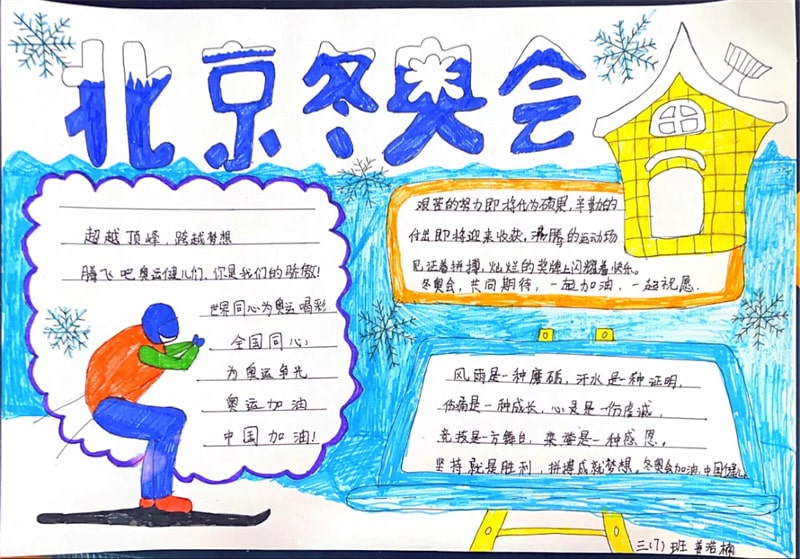 北京冬奥会
超越顶峰，跨越梦想
腾飞吧奥运健儿们，你是我们的骄傲！
世界同心为奥运喝彩
全国同心：
为奥运争光
奥运加油
中国加油！
艰苦的努力即将化为硕果，辛勤的
付出即将迎来收获，沸腾的运动场
见证着拼搏，灿烂的奖牌上闪耀着快乐。
冬奥会，共同期待，一起加油，一起祝愿.
风雨是一种磨砺，汗水是一种证明，
伤痛是一种成长，心灵是一份虔诚，
竞技是一方舞台，荣誉是一种感恩。
坚持就是胜利，拼搏成就梦想。冬奥会加油，中国健儿
三(7)班 姜浩楠